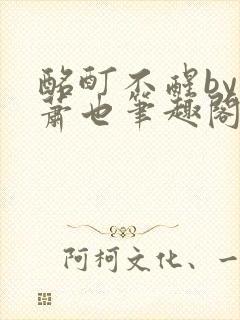 酩酊不醒by
萧也笔趣阁
阿柯文化、一